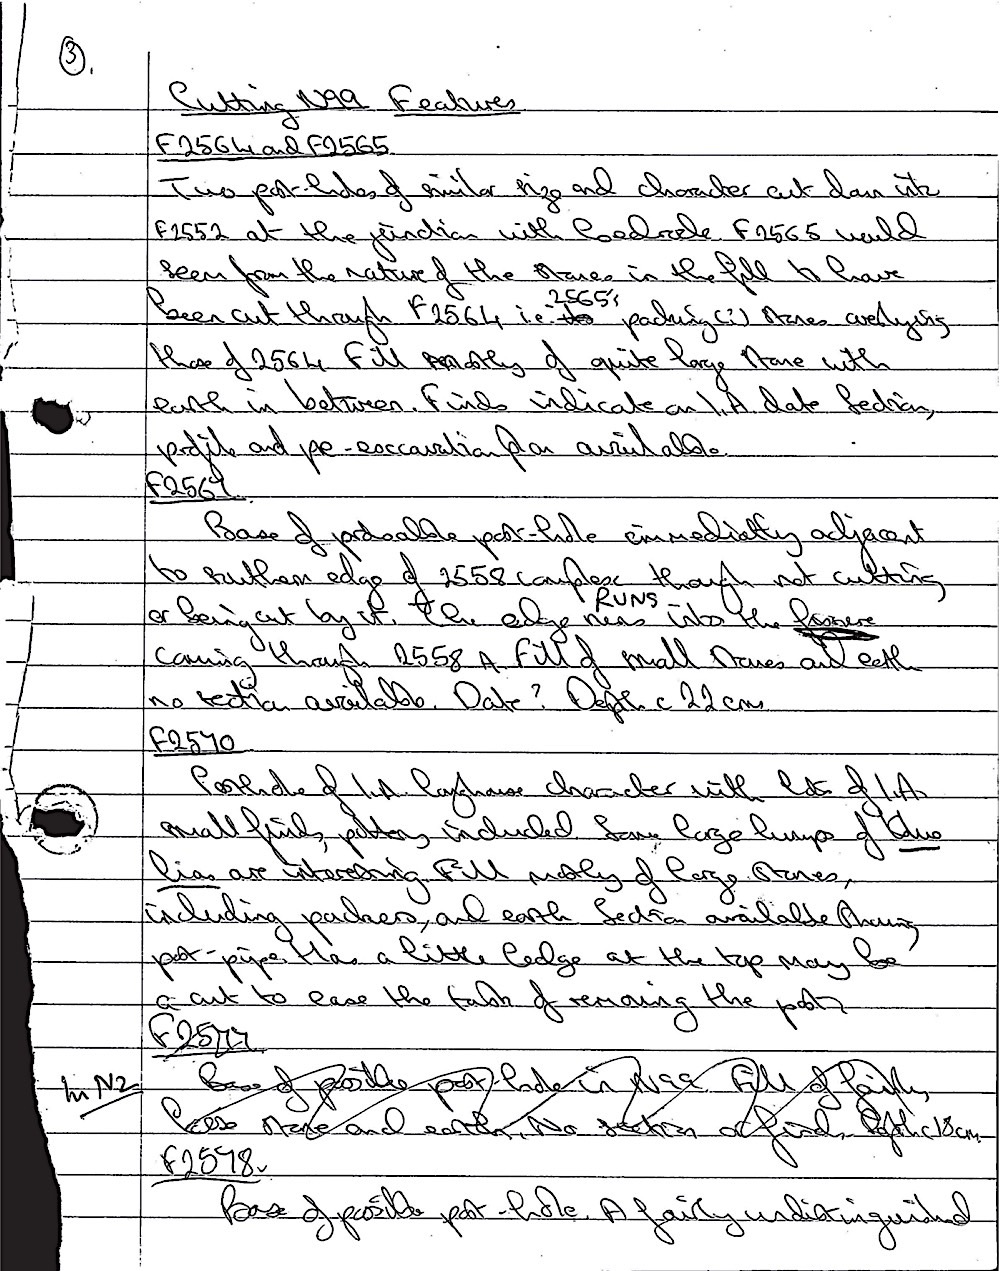 3.
Cutting N99 Features
F2564 and F2565
Two post-holes of similar size and character cut down into
F2552 at the junction with bedrock. F2565 would
seem from the nature of the stones in the fill to have
been cut through F2564 i.e. 2565's packing(?) stones overlying
those of 2564. Fill mostly of quite large stone with
earth in between. Finds indicate an I.A. date. Section,
profile and pre-excavation plan available.
F2567.
Base of probable post-hole immediately adjacent
to southern edge of 2558 complex though not cutting
or being cut by it. The edge runs RUNS into the fissure
coming through 2558 A. Fill of small stones and earth
no section available. Date? Depth c 22 cms
F2570
Posthole of I.A. character with lots of I.A.
small finds, pottery included. Some large lumps of blue
lias are interesting. Fill mostly of large stones,
including packers, and earth. Section available showing
post-pipe. Has a little ledge at the top may be
a cut to ease the task of removing the post.
F2577
In N2 Base of possible post-hole in N99. Fill of fairly
loose stone and earth. No section or finds. Depth c 18cm
F2578.
Base of possible post-hole. A fairly undistinguished